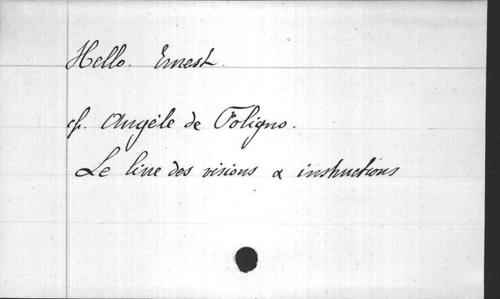 Hello. Ernest.
cf. Angèle de Foligno.
Le livre des visions & instructions